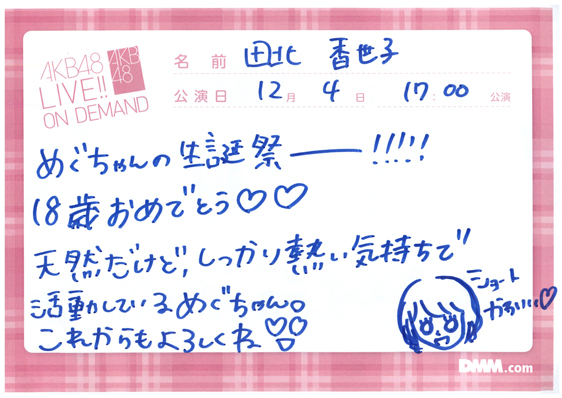 AKB48
LIVE!!
ON DEMAND
AKB
48
名前 田北 香世子
公演日 12月 4日 17:00 公演
めぐちゃんの生誕祭――!!!!!
18歳おめでとう♡♡
天然だけど、しっかり熱い気持ちで
活動しているめぐちゃん。
これからもよろしくね♡♡
ショート
かわいい♡
DMM.com